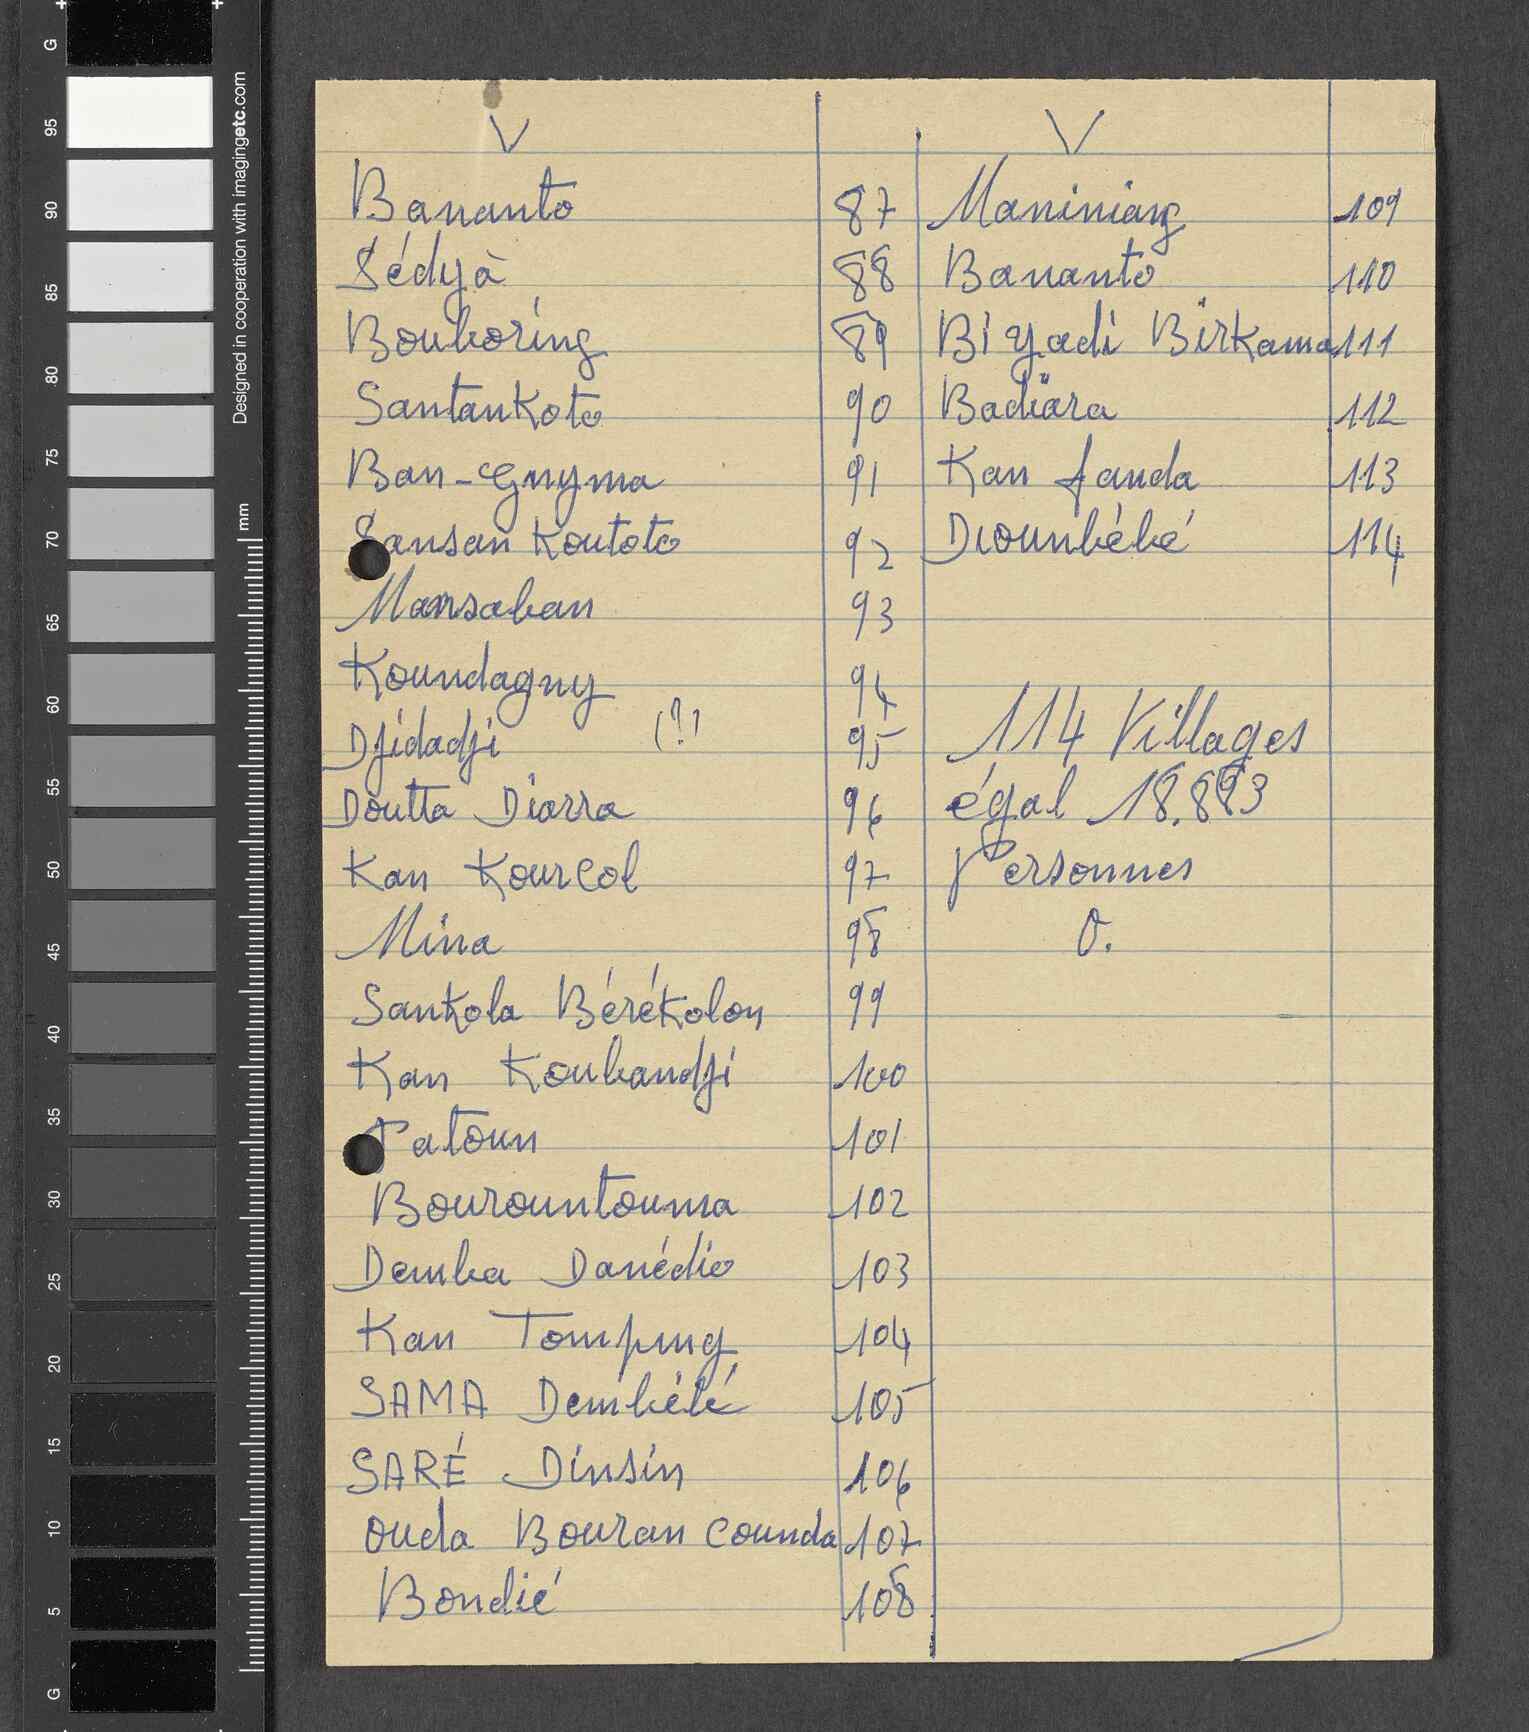 V
Bananto 87
Sédyà 88
Bouboring 89
SantanKoto 90
Ban-Gnyma 91
Sansan Koutoto 92
Mansaban 93
Koundagny 94
Djidadji (?) 95
Doutta Diarra 96
Kan Kourcol 97
Mina 98
Sankola BéréKolon 99
Kan Koubandji 100
Patoun 101
Bourountouma 102
Demba Danédio 103
Kan Tomping 104
SAMA Dembélé 105
SARÉ Dinsin 106
Ouda Bouran Counda 107
Bondié 108
V
Maniniang 109
Bananto 110
Bi Yadi Birkama 111
Badiara 112
Kan fanda 113
Diounbébé 114
114 Villages
égal 18.893
Personnes
O.
G
95
90
85
80
75
70
65
60
55
50
45
40
35
30
25
20
15
10
5
G
Designed in cooperation with imagingetc.com
mm